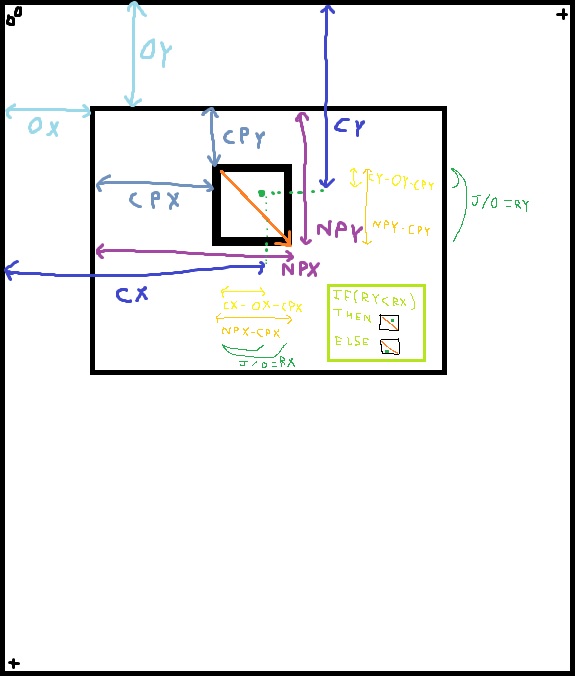 0 0
+
OY
OX
CPY
CY
CPX
CY-OY-CPY
NPY-CPY
J/O=RY
NPY
NPX
CX
CX-OX-CPX
NPX-CPX
J/O=RX
IF(RY<RX)
THEN
ELSE
+